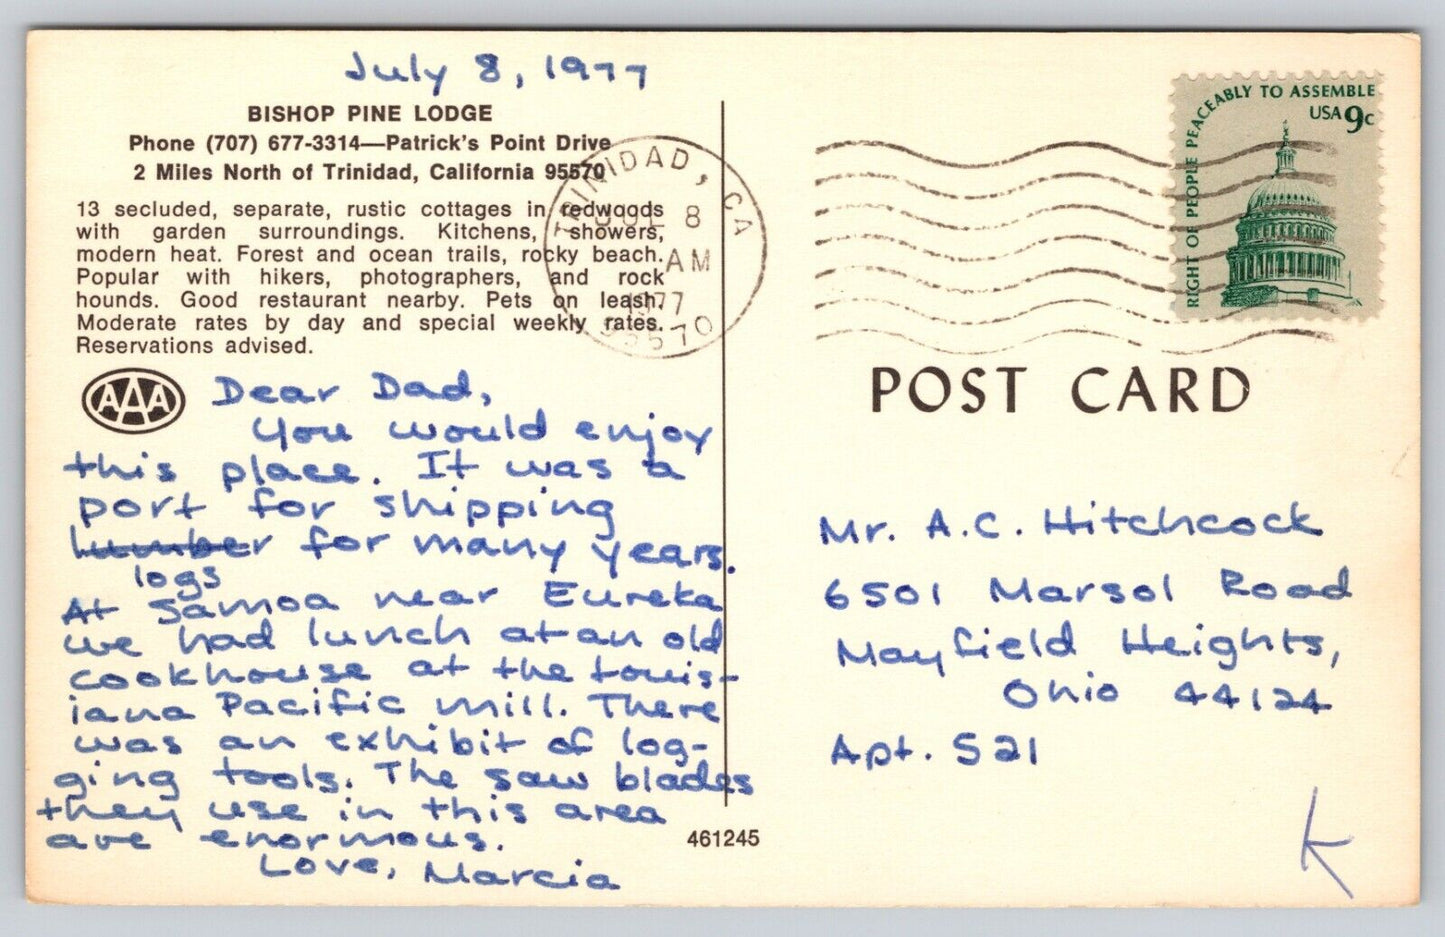 July 8, 1977
BISHOP PINE LODGE
Phone (707) 677-3314—Patrick's Point Drive
2 Miles North of Trinidad, California 95570
13 secluded, separate, rustic cottages in redwoods
with garden surroundings. Kitchens, showers,
modern heat. Forest and ocean trails, rocky beach.
Popular with hikers, photographers, and rock
hounds. Good restaurant nearby. Pets on leash.
Moderate rates by day and special weekly rates.
Reservations advised.
AAA
Dear Dad,
You would enjoy
this place. It was a
port for shipping
lumber for many years.
logs
At Samoa near Eureka
we had lunch at an old
cookhouse at the Louis-
iana Pacific mill. There
was an exhibit of log-
ging tools. The saw blades
they use in this area
are enormous.
Love, Marcia
461245
TRINIDAD, CA
JUL 8
AM
1977
95570
RIGHT OF PEOPLE PEACEABLY TO ASSEMBLE
USA 9c
POST CARD
Mr. A.C. Hitchcock
6501 Marsol Road
Mayfield Heights,
Ohio 44124
Apt. 521